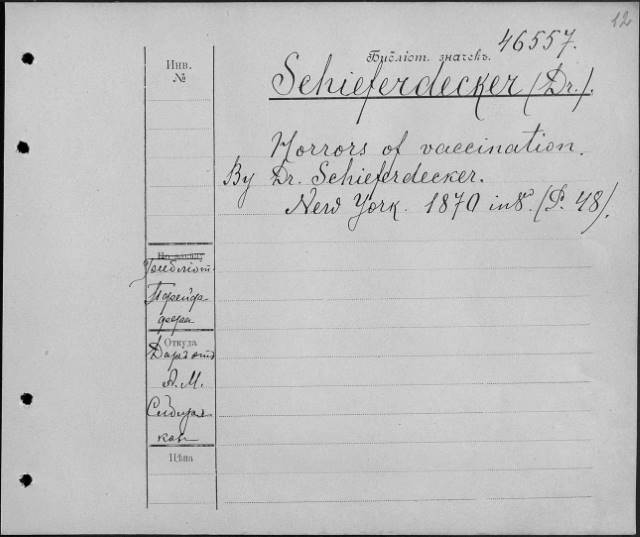 12
46557.
Библіот. значекъ.
Инв.
№
Schieferdecker (Dr.).
Horrors of vaccination.
By Dr. Schieferdecker.
New York. 1870 in 8°. (P. 48).
Изъ библіот.
Пфейф-
фера
Откуда
Даръ отъ
А. М.
Сибиря-
кова
Цѣна